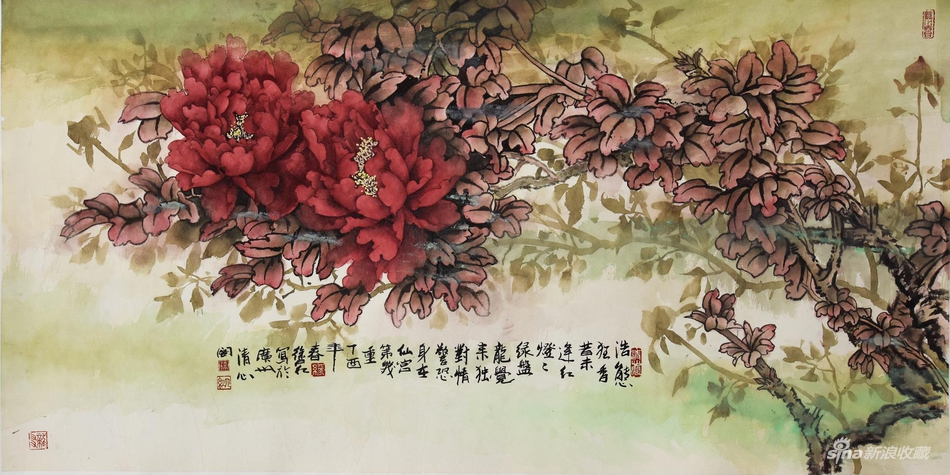 浩態
狂香
昔未
逢红
燈々
绿盤
龍覺
来独
對情
警恐
身在
仙宫
第幾
重
丁酉
年
春
寫於
廣州
清心
閣
sina新浪收藏